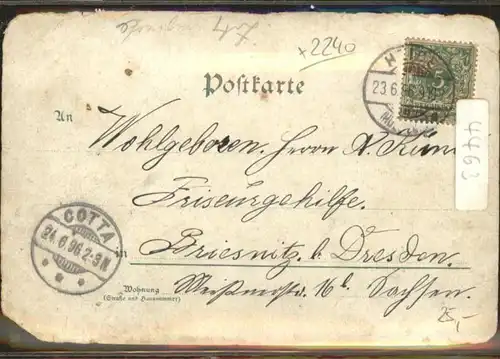 x 2240
Postkarte
23.6.96
5
4462
An Wohlgeboren Herrn A.
Friseurgehilfe.
COTTA
24.6.96.2-3N.
in Briesnitz b. Dresden.
Wohnung
(Straße und Hausnummer)
Meißnerstr. 16 b. Sachsen.
25,-